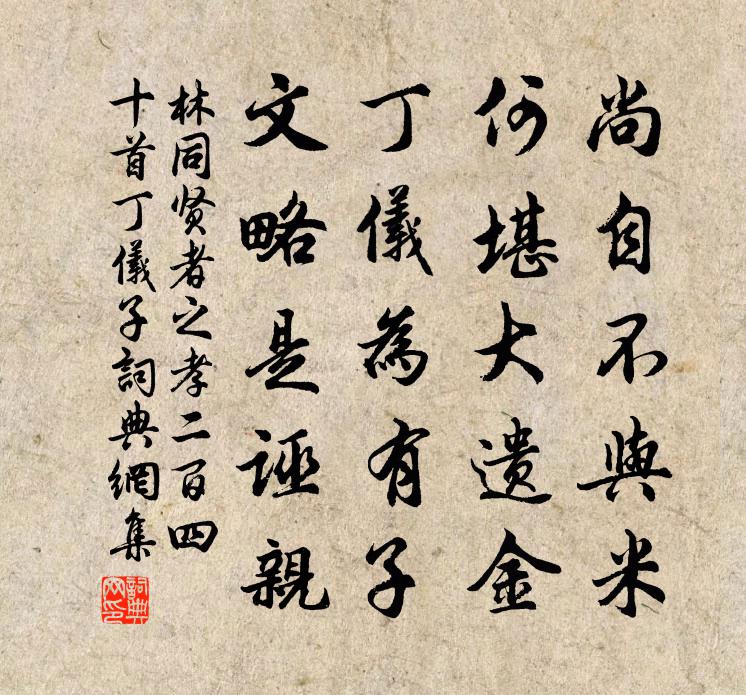 尚自不與米
何堪大遗金
丁儀為有子
文略是诬親
林同贤者之孝二百四
十首丁儀子詞典網集
詞典